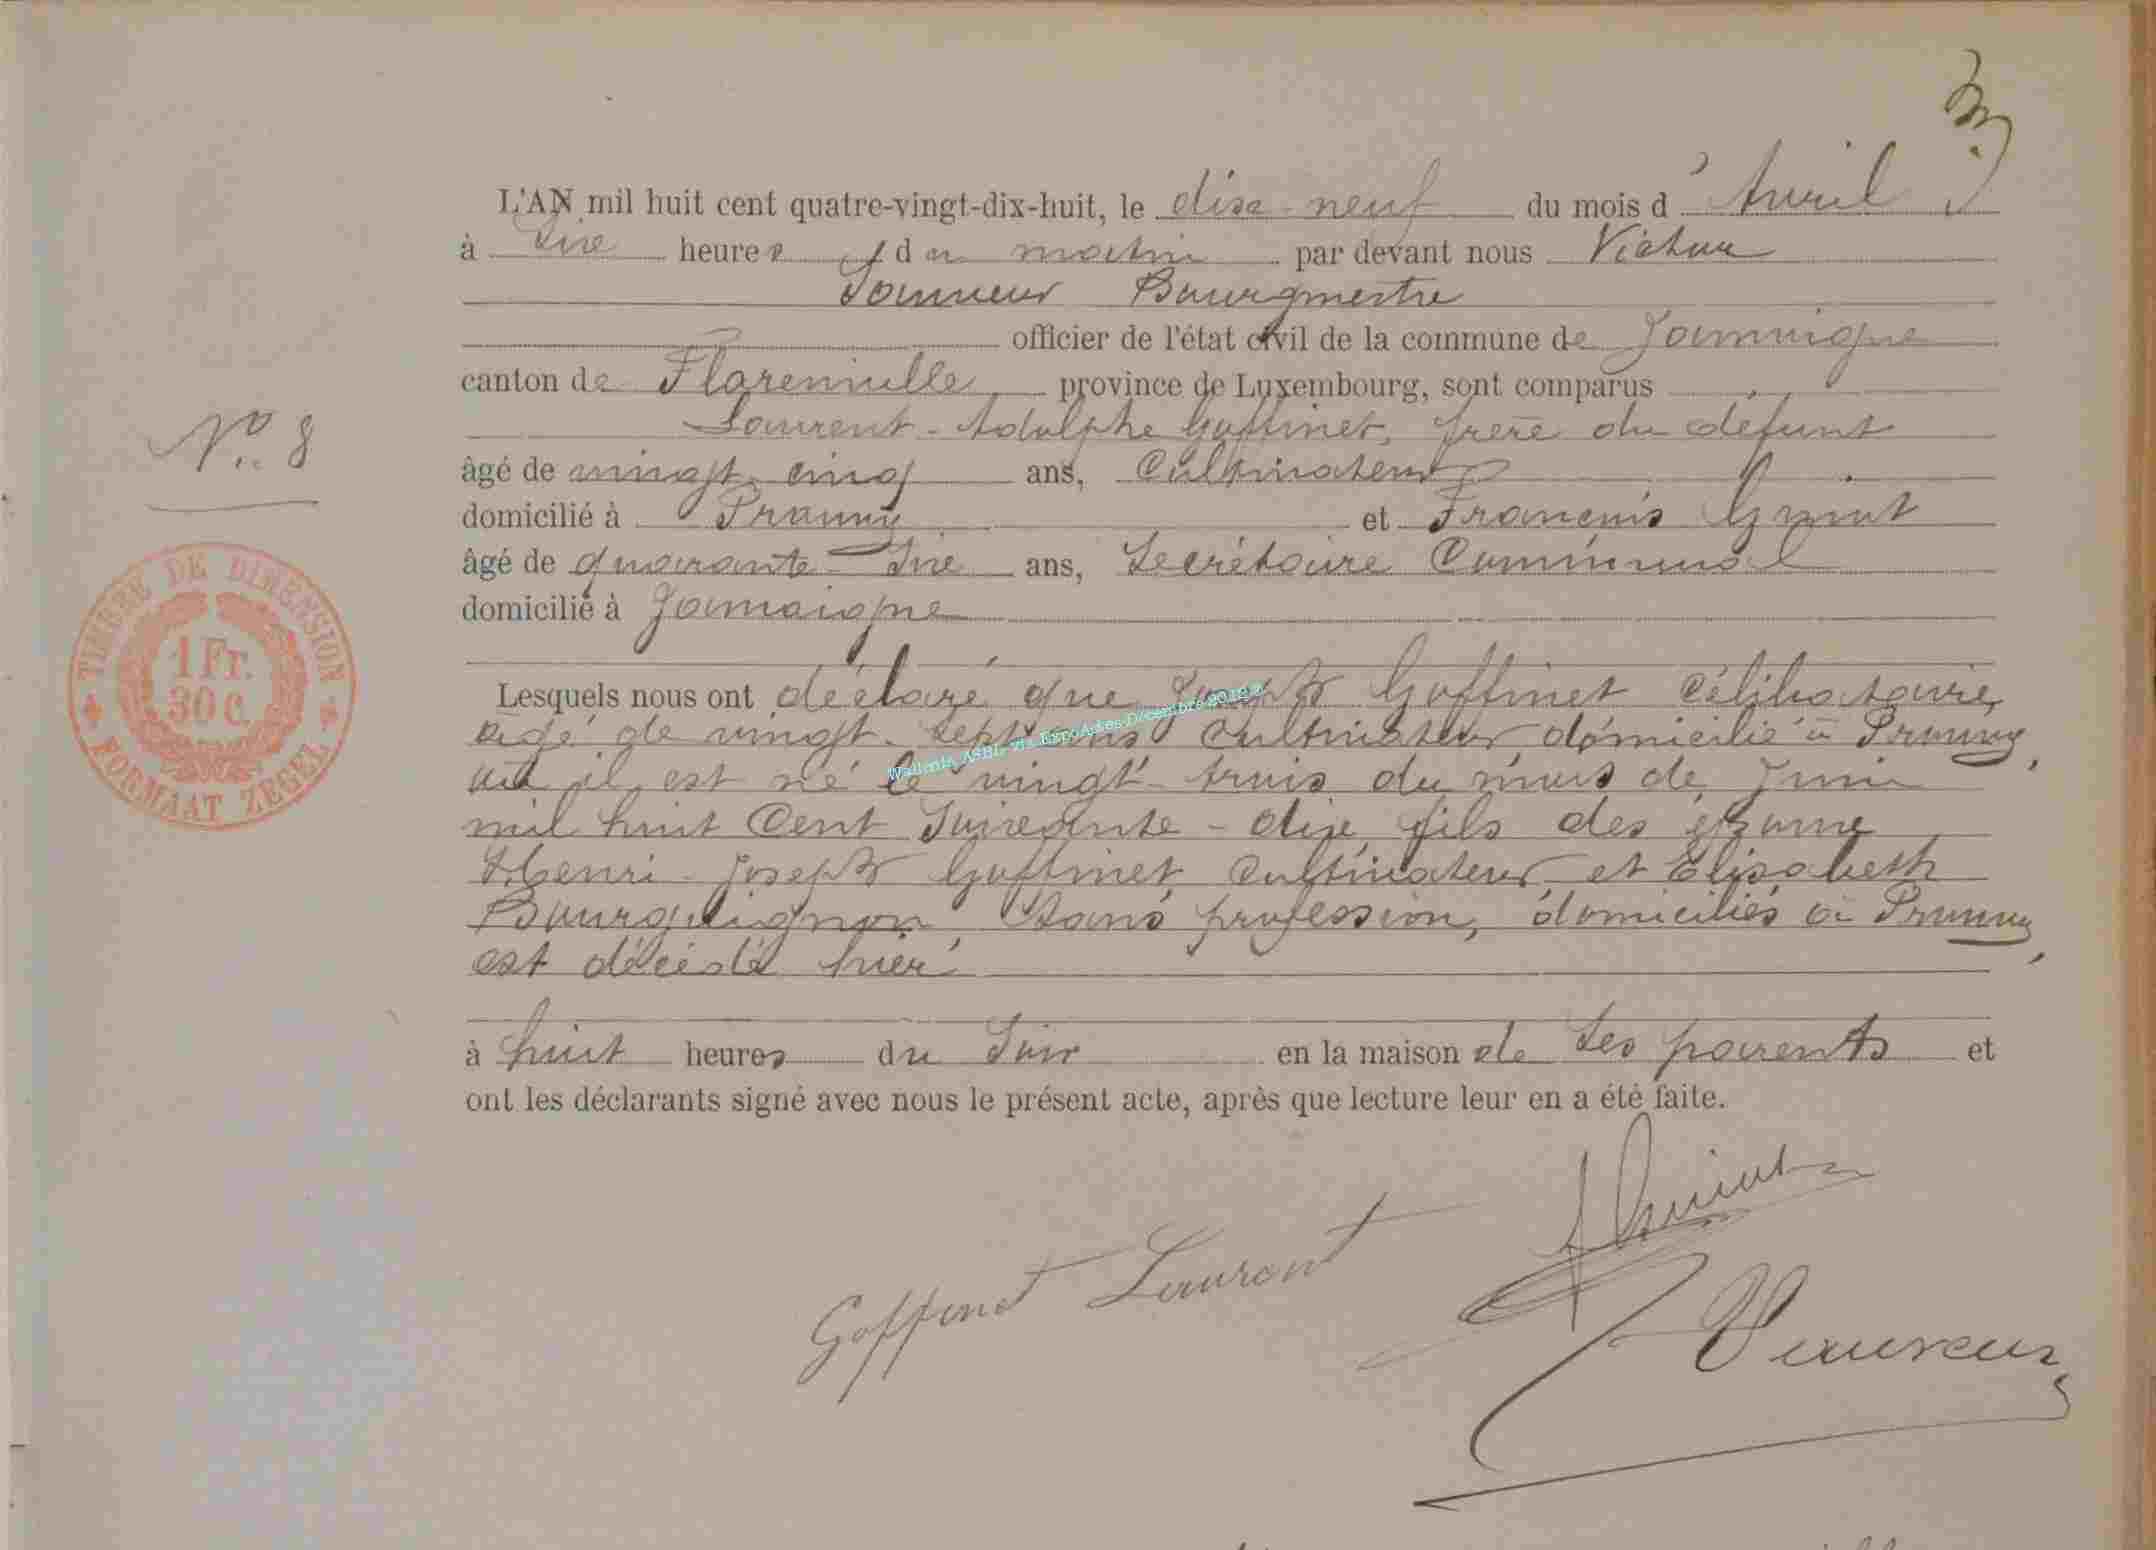 L'AN mil huit cent quatre-vingt-dix-huit, le dix-neuf du mois d'Avril
à six heures du matin par devant nous Victor
Bourgmestre
officier de l'état civil de la commune de Jamoigne
canton de Florenville province de Luxembourg, sont comparus
Laurent-Adolphe Goffinet, frère du défunt
âgé de vingt-cinq ans, Cultivateur
domicilié à Prouvy et François Guiot
âgé de quarante-six ans, Secrétaire Communal
domicilié à Jamoigne
N° 8
TIMBRE DE DIMENSION
1 Fr.
30 C.
FORMAAT ZEGEL
Lesquels nous ont déclaré que Joseph Goffinet Célibataire,
âgé de vingt-sept ans Cultivateur domicilié à Prouvy,
où il est né le vingt-trois du mois de Juin
mil huit Cent Soixante-dix, fils des époux
Henri-Joseph Goffinet, Cultivateur et Elisabeth
Bourguignon, sans profession, domiciliés à Prouvy,
est décédé hier
à huit heures du Soir en la maison de Ses parents et
ont les déclarants signé avec nous le présent acte, après que lecture leur en a été faite.
Wallonia ASBL via ExpoActes Décembre
Guiot
Goffinet Laurent